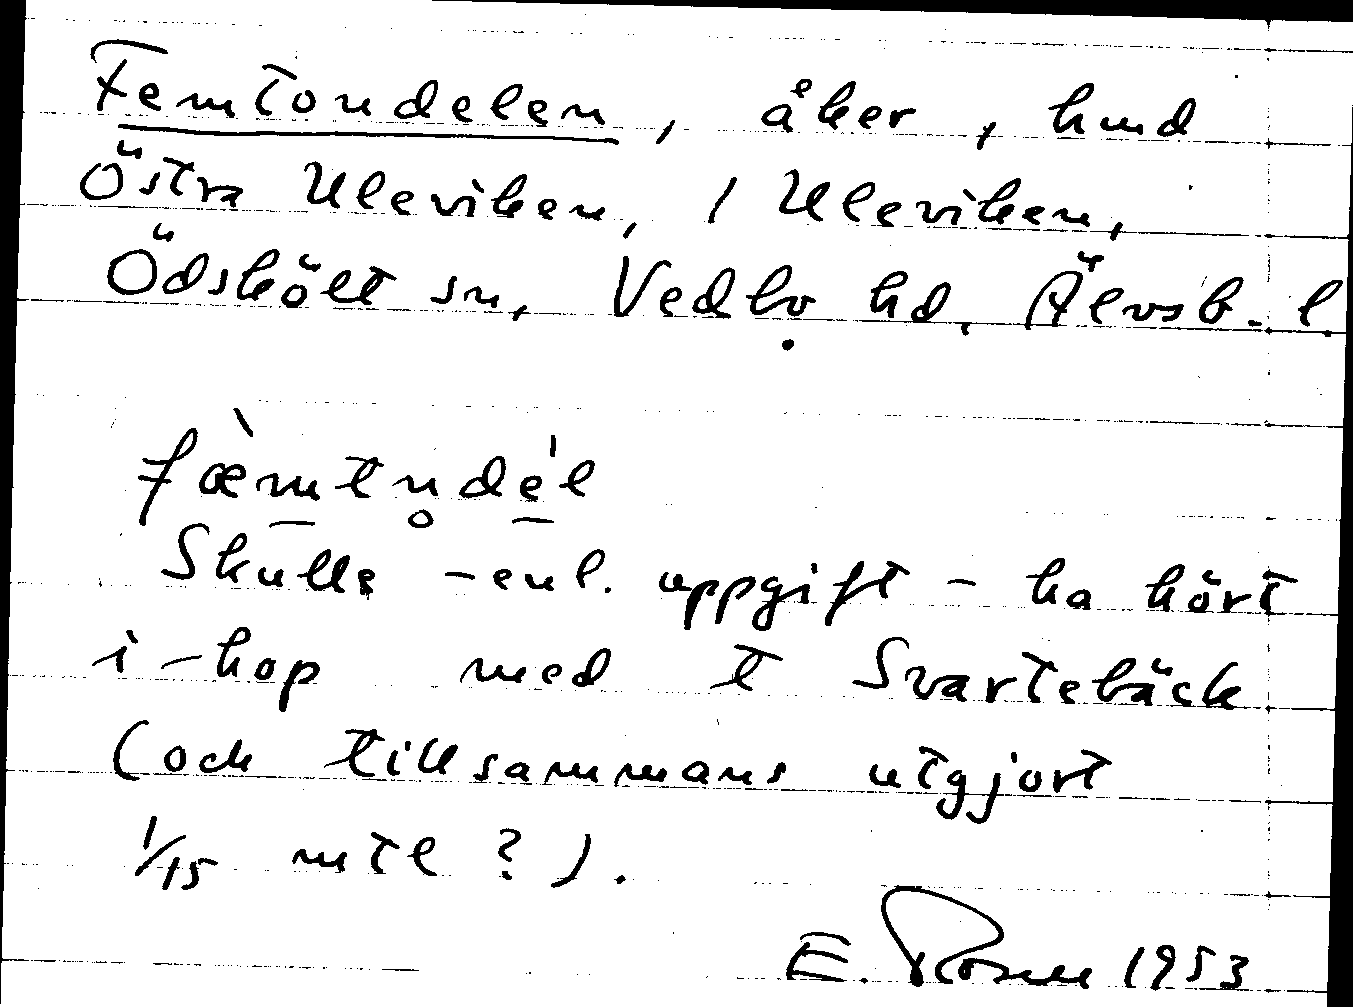 Femtondelen, åker, hmd
Östra Uleviken, / Uleviken,
Ödskölt sn, Vedbo hd. Älvsb. l.
fæ̀mtn̥dél
Skulle - enl. uppgift - ha hört
i-hop med t Svartebäck
(och tillsammans utgjort
1/15 mtl ?).
E. 1953